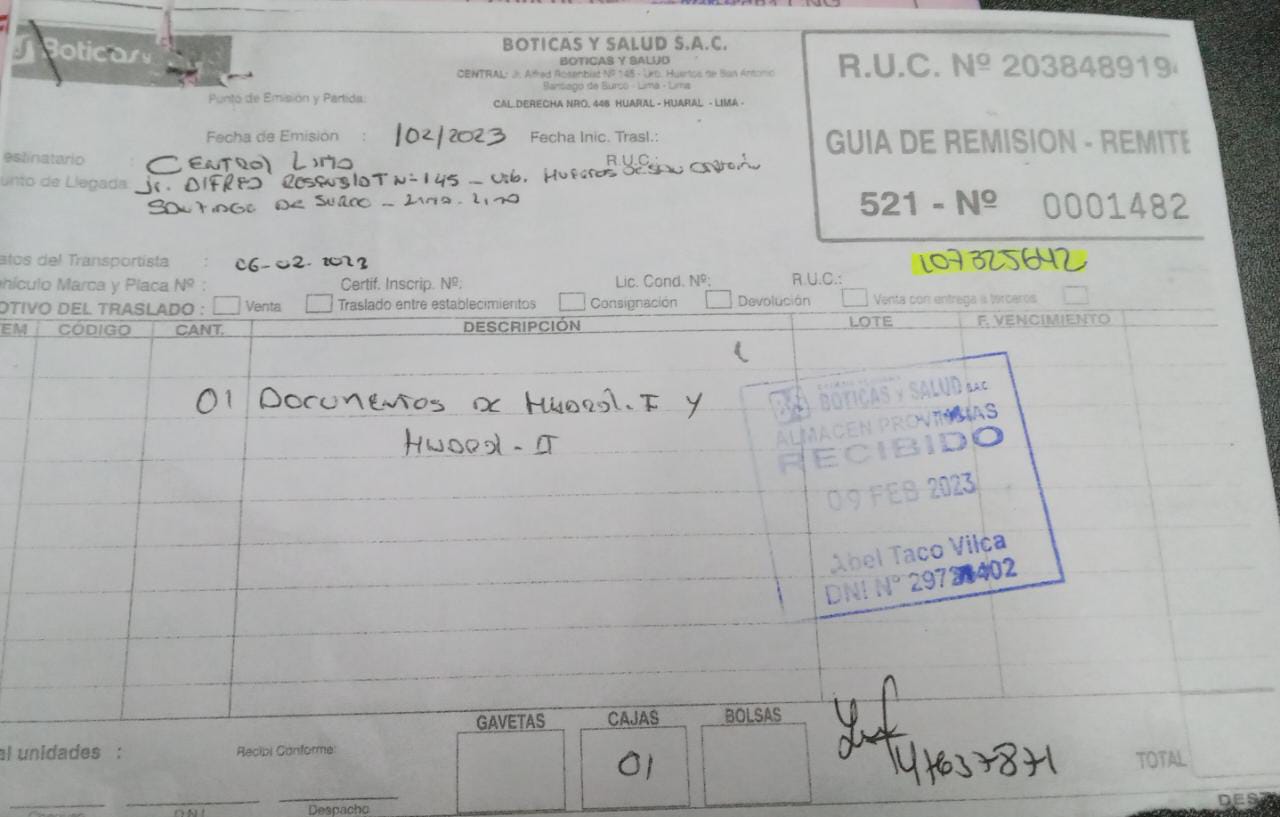 Boticas y
BOTICAS Y SALUD S.A.C.
BOTICAS Y SALUD
CENTRAL: Jr. Alfred Rosenblat Nº 145 - Urb. Huertos de San Antonio
Santiago de Surco - Lima - Lima
CAL.DERECHA NRO. 446 HUARAL - HUARAL - LIMA -
R.U.C. Nº 203848919
GUIA DE REMISION - REMITE
521 - Nº 0001482
Punto de Emisión y Partida:
Fecha de Emisión : /02/2023 Fecha Inic. Trasl.:
estinatario : CENTROL LIMA R.U.C.:
unto de Llegada Jr. N-145 - Urb. Huertos
Santiago de Surco - Lima - Lima
atos del Transportista : 06-02-2023
107325642
ehículo Marca y Placa Nº : Certif. Inscrip. Nº: Lic. Cond. Nº: R.U.C.:
OTIVO DEL TRASLADO : Venta Traslado entre establecimientos Consignación Devolución Venta con entrega a terceros
EM CÓDIGO CANT. DESCRIPCIÓN LOTE F. VENCIMIENTO
01 Documentos de Huaral-I y
Huaral-II
BOTICAS Y SALUD SAC
ALMACEN PROVINCIAS
RECIBIDO
09 FEB 2023
Abel Taco Vilca
DNI Nº 297 402
GAVETAS CAJAS BOLSAS
al unidades : Recibí Conforme: 01 47637871 TOTAL
D.N.I. Despacho
DEST